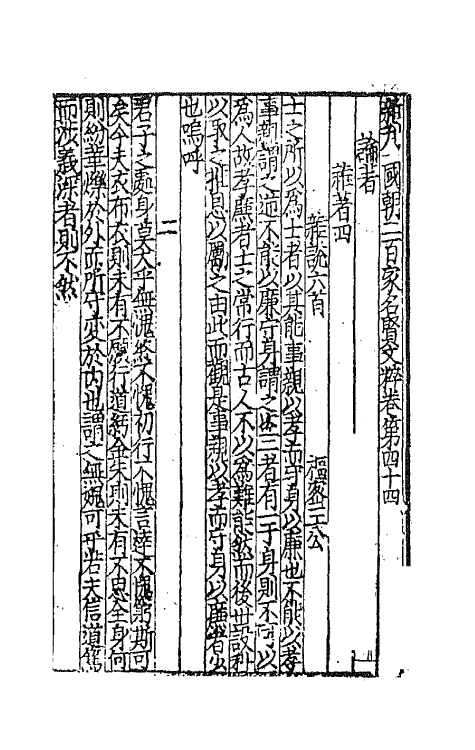 新刊國朝二百家名賢文粹卷第四十四
論著
雜著四
雜說六首
士之所以為士者以其能事親以孝而守身以廉也不能以孝
事親謂之逆不能以廉守身謂之
二者有一于身則不可以
為人故孝廉者士之常行而古人不以為難能然而後世設科
以取之推恩以屬之由此而觀是事親以孝而守身以廉者少
也嗚呼
二
君子之處身莫大乎無愧終不愧初行不愧言達不愧窮斯可
矣今夫衣布衣則未有不愿行道紆金朱則未有不思全身何
則紛華爍於外而所守变於內也謂之無媿可乎若夫信道篤
而涉義深者則不然